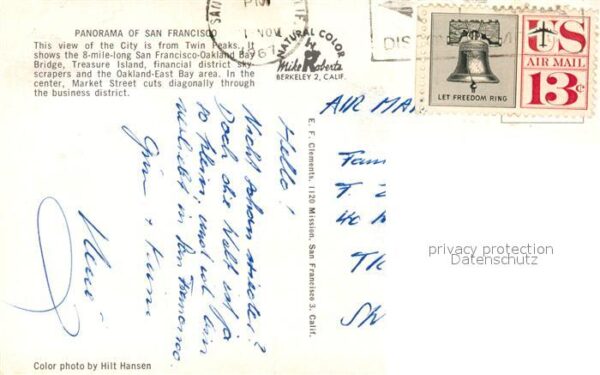 PANORAMA OF SAN FRANCISCO
This view of the City is from Twin Peaks. It
shows the 8-mile-long San Francisco-Oakland Bay
Bridge, Treasure Island, financial district sky-
scrapers and the Oakland-East Bay area. In the
center, Market Street cuts diagonally through
the business district.
PM
1 NOV
1967
NATURAL COLOR
Mike Roberts
BERKELEY 2, CALIF.
DIS
LET FREEDOM RING
US
AIR MAIL
13c
AIR MA
Hello!
Nicht schon wieder?
Doch die Welt ist ja
so klein, und ich bin
verliebt in San Francisco.
E. F. Clements, 1120 Mission, San Francisco 3, Calif.
Fam
T
40
Sh
privacy protection
Datenschutz
Color photo by Hilt Hansen